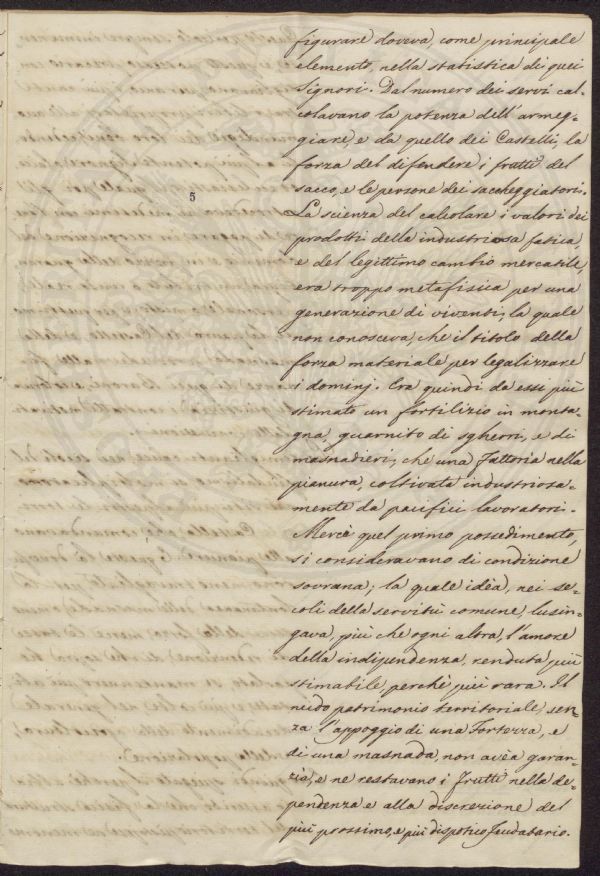 figurare doveva, come principale
elemento, nella statistica di quei
Signori. Dal numero dei servi cal=
colavano la potenza dell'armeg=
giare, e da quello dei Castelli, la
forza del difendere i frutti del
sacco, e le persone dei saccheggiatori.
5
La scienza del calcolare i valori dei
prodotti della industriosa fatica,
e del legittimo cambio mercatile,
era troppo metafisica per una
generazione di viventi, la quale
non conosceva, che il titolo della
forza materiale per legalizzare
i dominj. Era quindi da essi più
stimato un fortilizio in monta=
gna, guarnito di sgherri, e di
masnadieri, che una Fattoria nella
pianura, coltivata industriosa=
mente da pacifici lavoratori.
Mercè quel primo possedimento,
si consideravano di condizione
sovrana; la quale idèa, nei se=
coli della servitù comune, lusin=
gava, più che ogni altra, l'amore
della indipendenza, renduta più
stimabile perchè più rara. Il
nudo patrimonio territoriale, sen=
za l'appoggio di una Fortezza, e
di una masnada, non avèa garan=
zia, e ne restavano i frutti nella de=
pendenza e alla discrezione del
più prossimo, e più dispotico Feudatario.